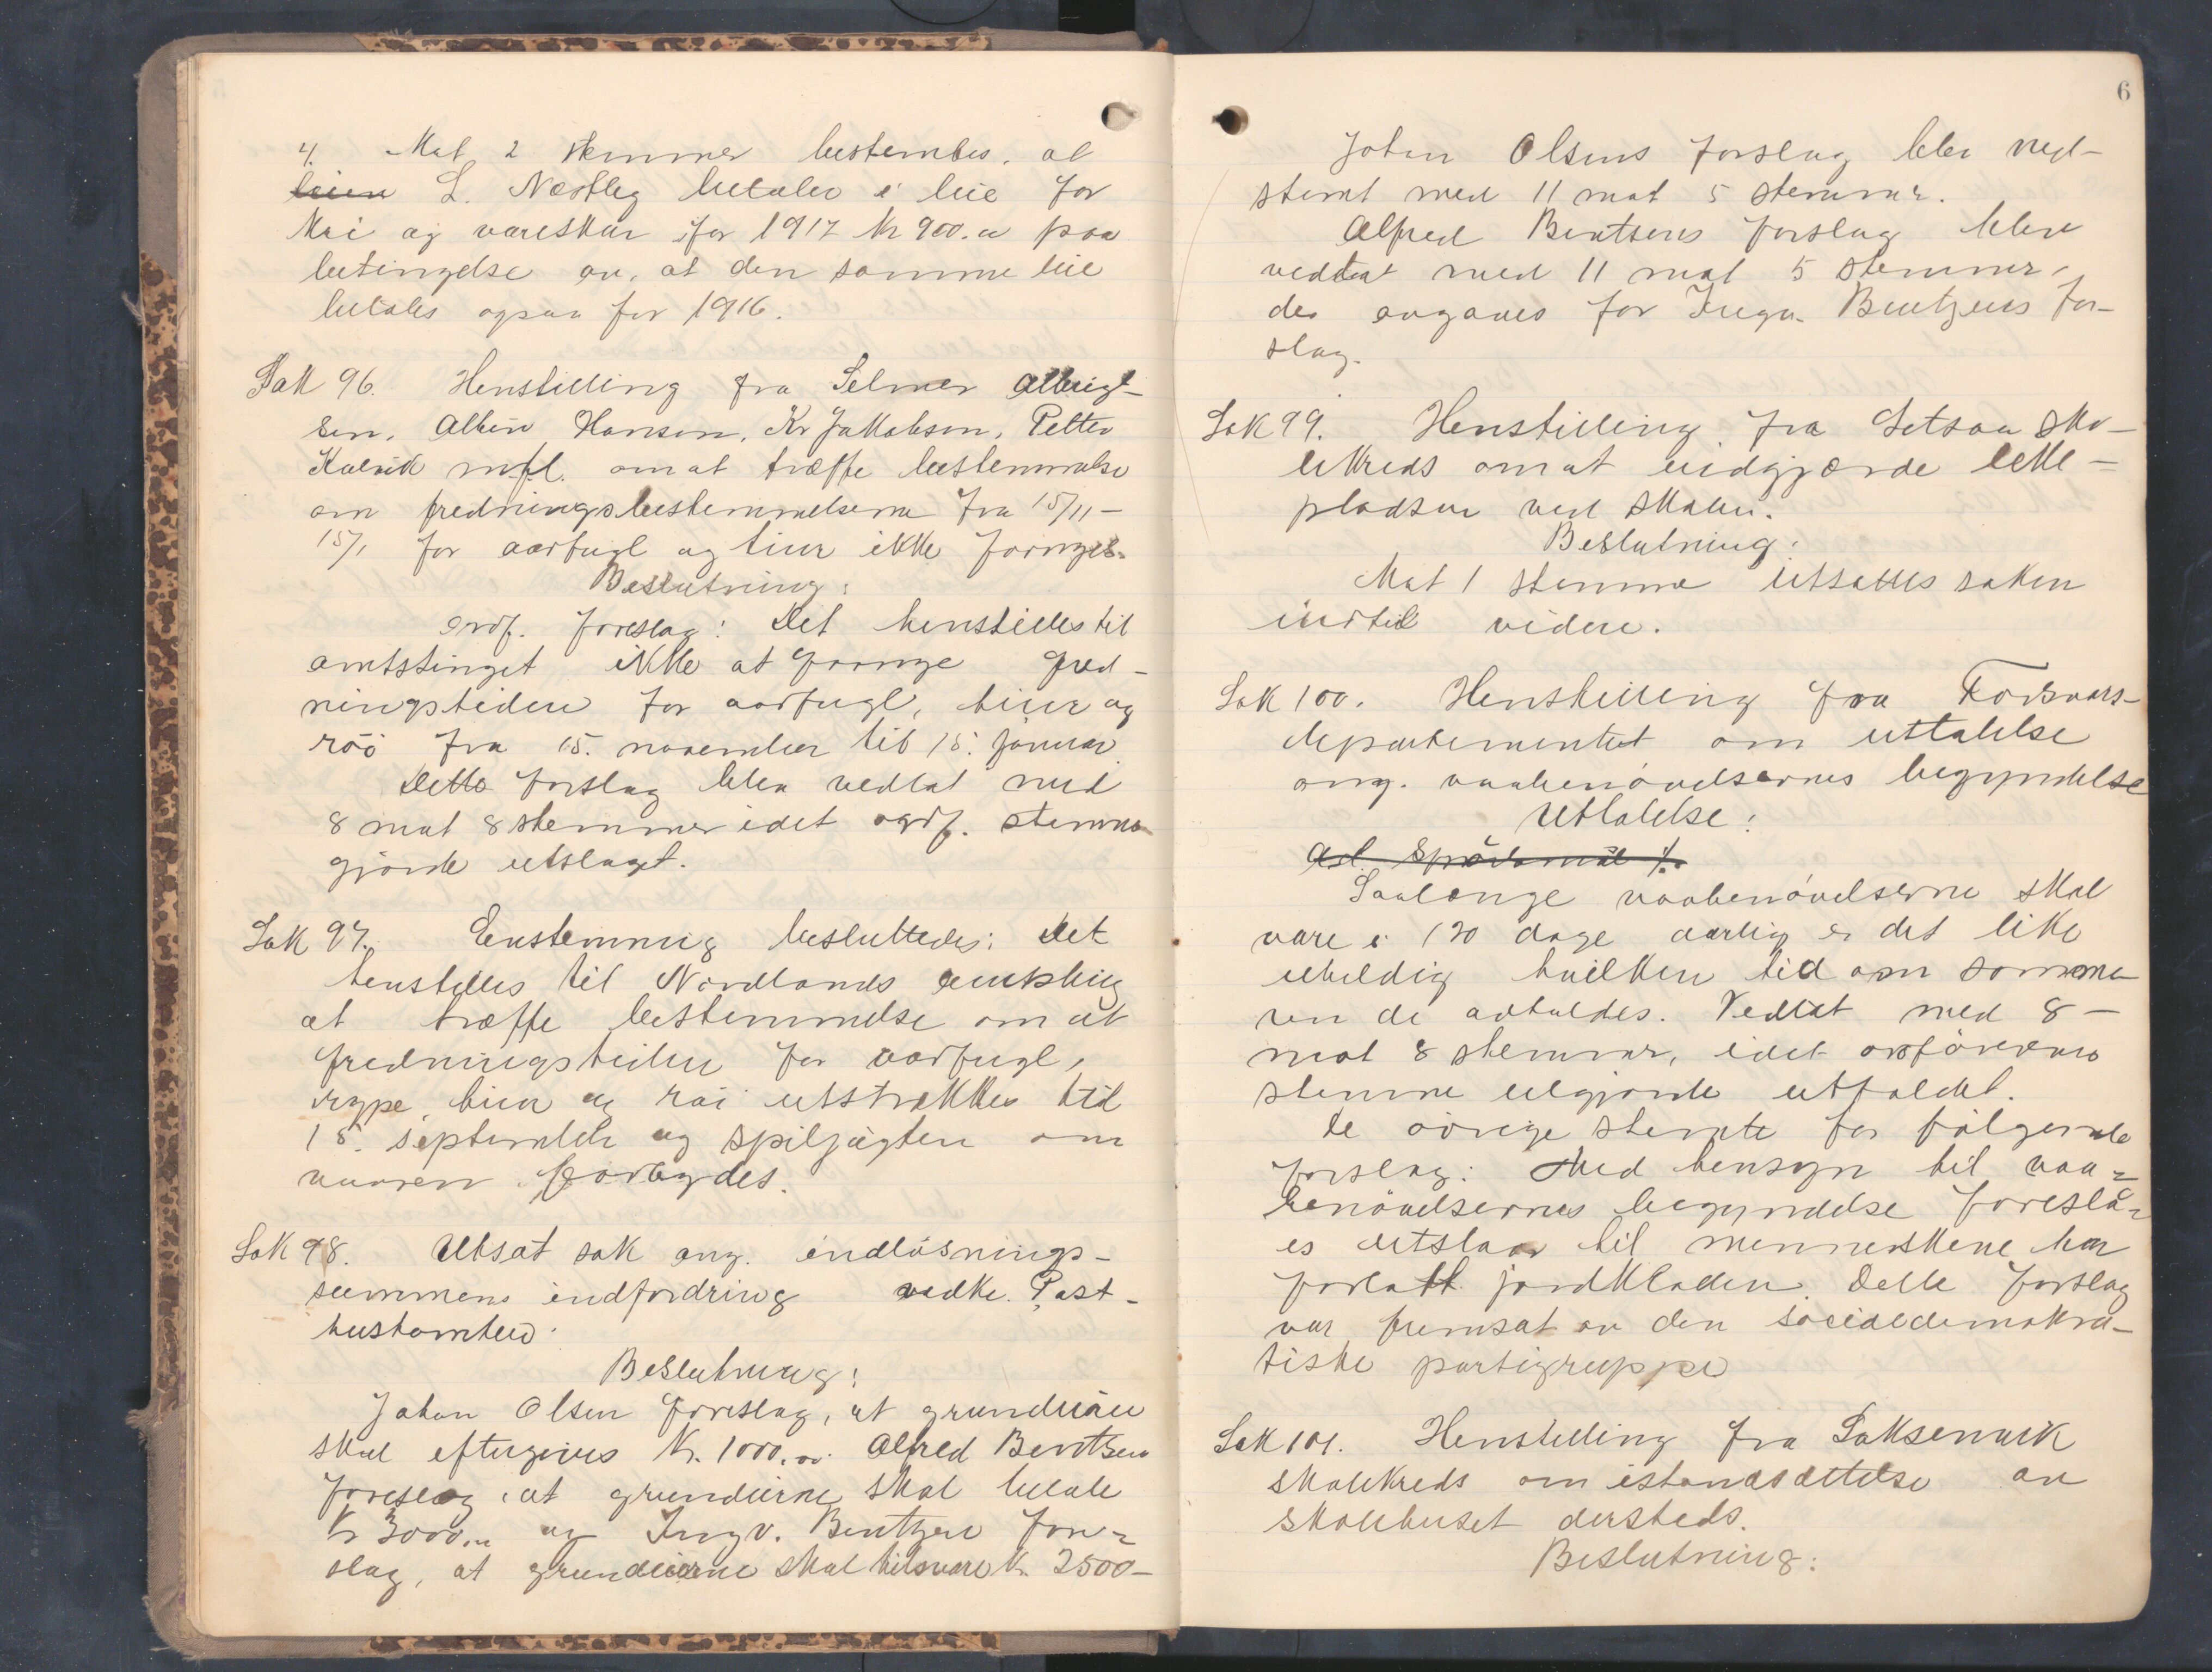 4. Mot 2 stemmer bestemtes, at
leien L. Næstby betaler i leie for
kai og vareskur for 1917 kr 900.00 paa
betingelse av, at den samme leie
betales ogsaa for 1916.
Sak 96. Henstilling fra Selmer Albrigt-
sen, Albin Hansen, Kr Jakobsen, Petter
Kalvik m.fl. om at træffe bestemmelse
om fredningsbestemmelserne fra 15/11 -
15/1 for aarfugl og tiur ikke fornyes.
Beslutning:
Ordf. foreslog: Det henstilles til
amtstinget ikke at fornye fred-
ningstiden for aarfugl, tiur og
röi fra 15. november til 15. januar.
Dette forslag blev vedtat med
8 mot 8 stemmer idet ordf. stemme
gjorde utslaget.
Sak 97. Enstemmig besluttedes: Det
henstilles til Nordlands amtsting
at træffe bestemmelse om at
fredningstiden for aarfugl,
rype, tiur og röi utstrækkes til
15. september og spiljagten om
vaaren forbydes.
Sak 98. Utsat sak ang. indlösnings-
summens indfordring vedk. Post-
hustomten.
Beslutning:
Johan Olsen foreslog, at grundeiern
skal eftergives Kr. 1000.00. Alfred Bentsen
foreslog, at grundeierne skal betale
Kr 3000.00 og Ingv. Bentzen fore-
slog, at grundeierne skal tilsvare Kr. 2500-
6
Johan Olsens forslag blev ned-
stemt med 11 mot 5 stemmer.
Alfred Bentsens forslag blev
vedtat med 11 mot 5 stemmer,
der avgaves for Ingv. Bentzens for-
slag.
Sak 99. Henstilling fra Setsaa sko-
lekreds om at indgjærde leke-
pladsen ved skolen.
Beslutning:
Mot 1 stemme utsattes saken
indtil videre.
Sak 100. Henstilling fra Forsvars-
departementet om uttalelse
ang. vaabenövelsernes begyndelse
Uttalelse:
Ad. Spörsmål 1.
Saalænge vaabenövelserne skal
vare i 120 dage aarlig er det like
uheldig hvilken tid om somme
ren de avholdes. Vedtat med 8 -
mot 8 stemmer, idet ordförerens
stemme utgjorde utfaldet.
De övrige stemte for fölgende
forslag: Med hensyn til vaa-
benövelsernes begyndelse foreslå-
es utslaar til menneskene har
forlatt jordkloden. Dette forslag
var fremsat av den socialdemokra-
tiske partigruppe
Sak 101. Henstilling fra Saksenvik
skolekreds om istandsættelse av
skolehuset dersteds.
Beslutning: